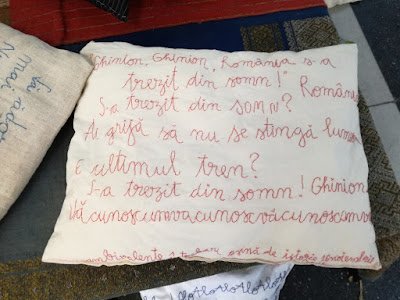 Ghinion, Ghinion, România s-a
trezit din somn!" România
S-a trezit din somn?
Ai grijă să nu se stingă lumina
E ultimul tren?
S-a trezit din somn! Ghinion
Văcunoscumvacunoscvăcunoscumva
de istorie